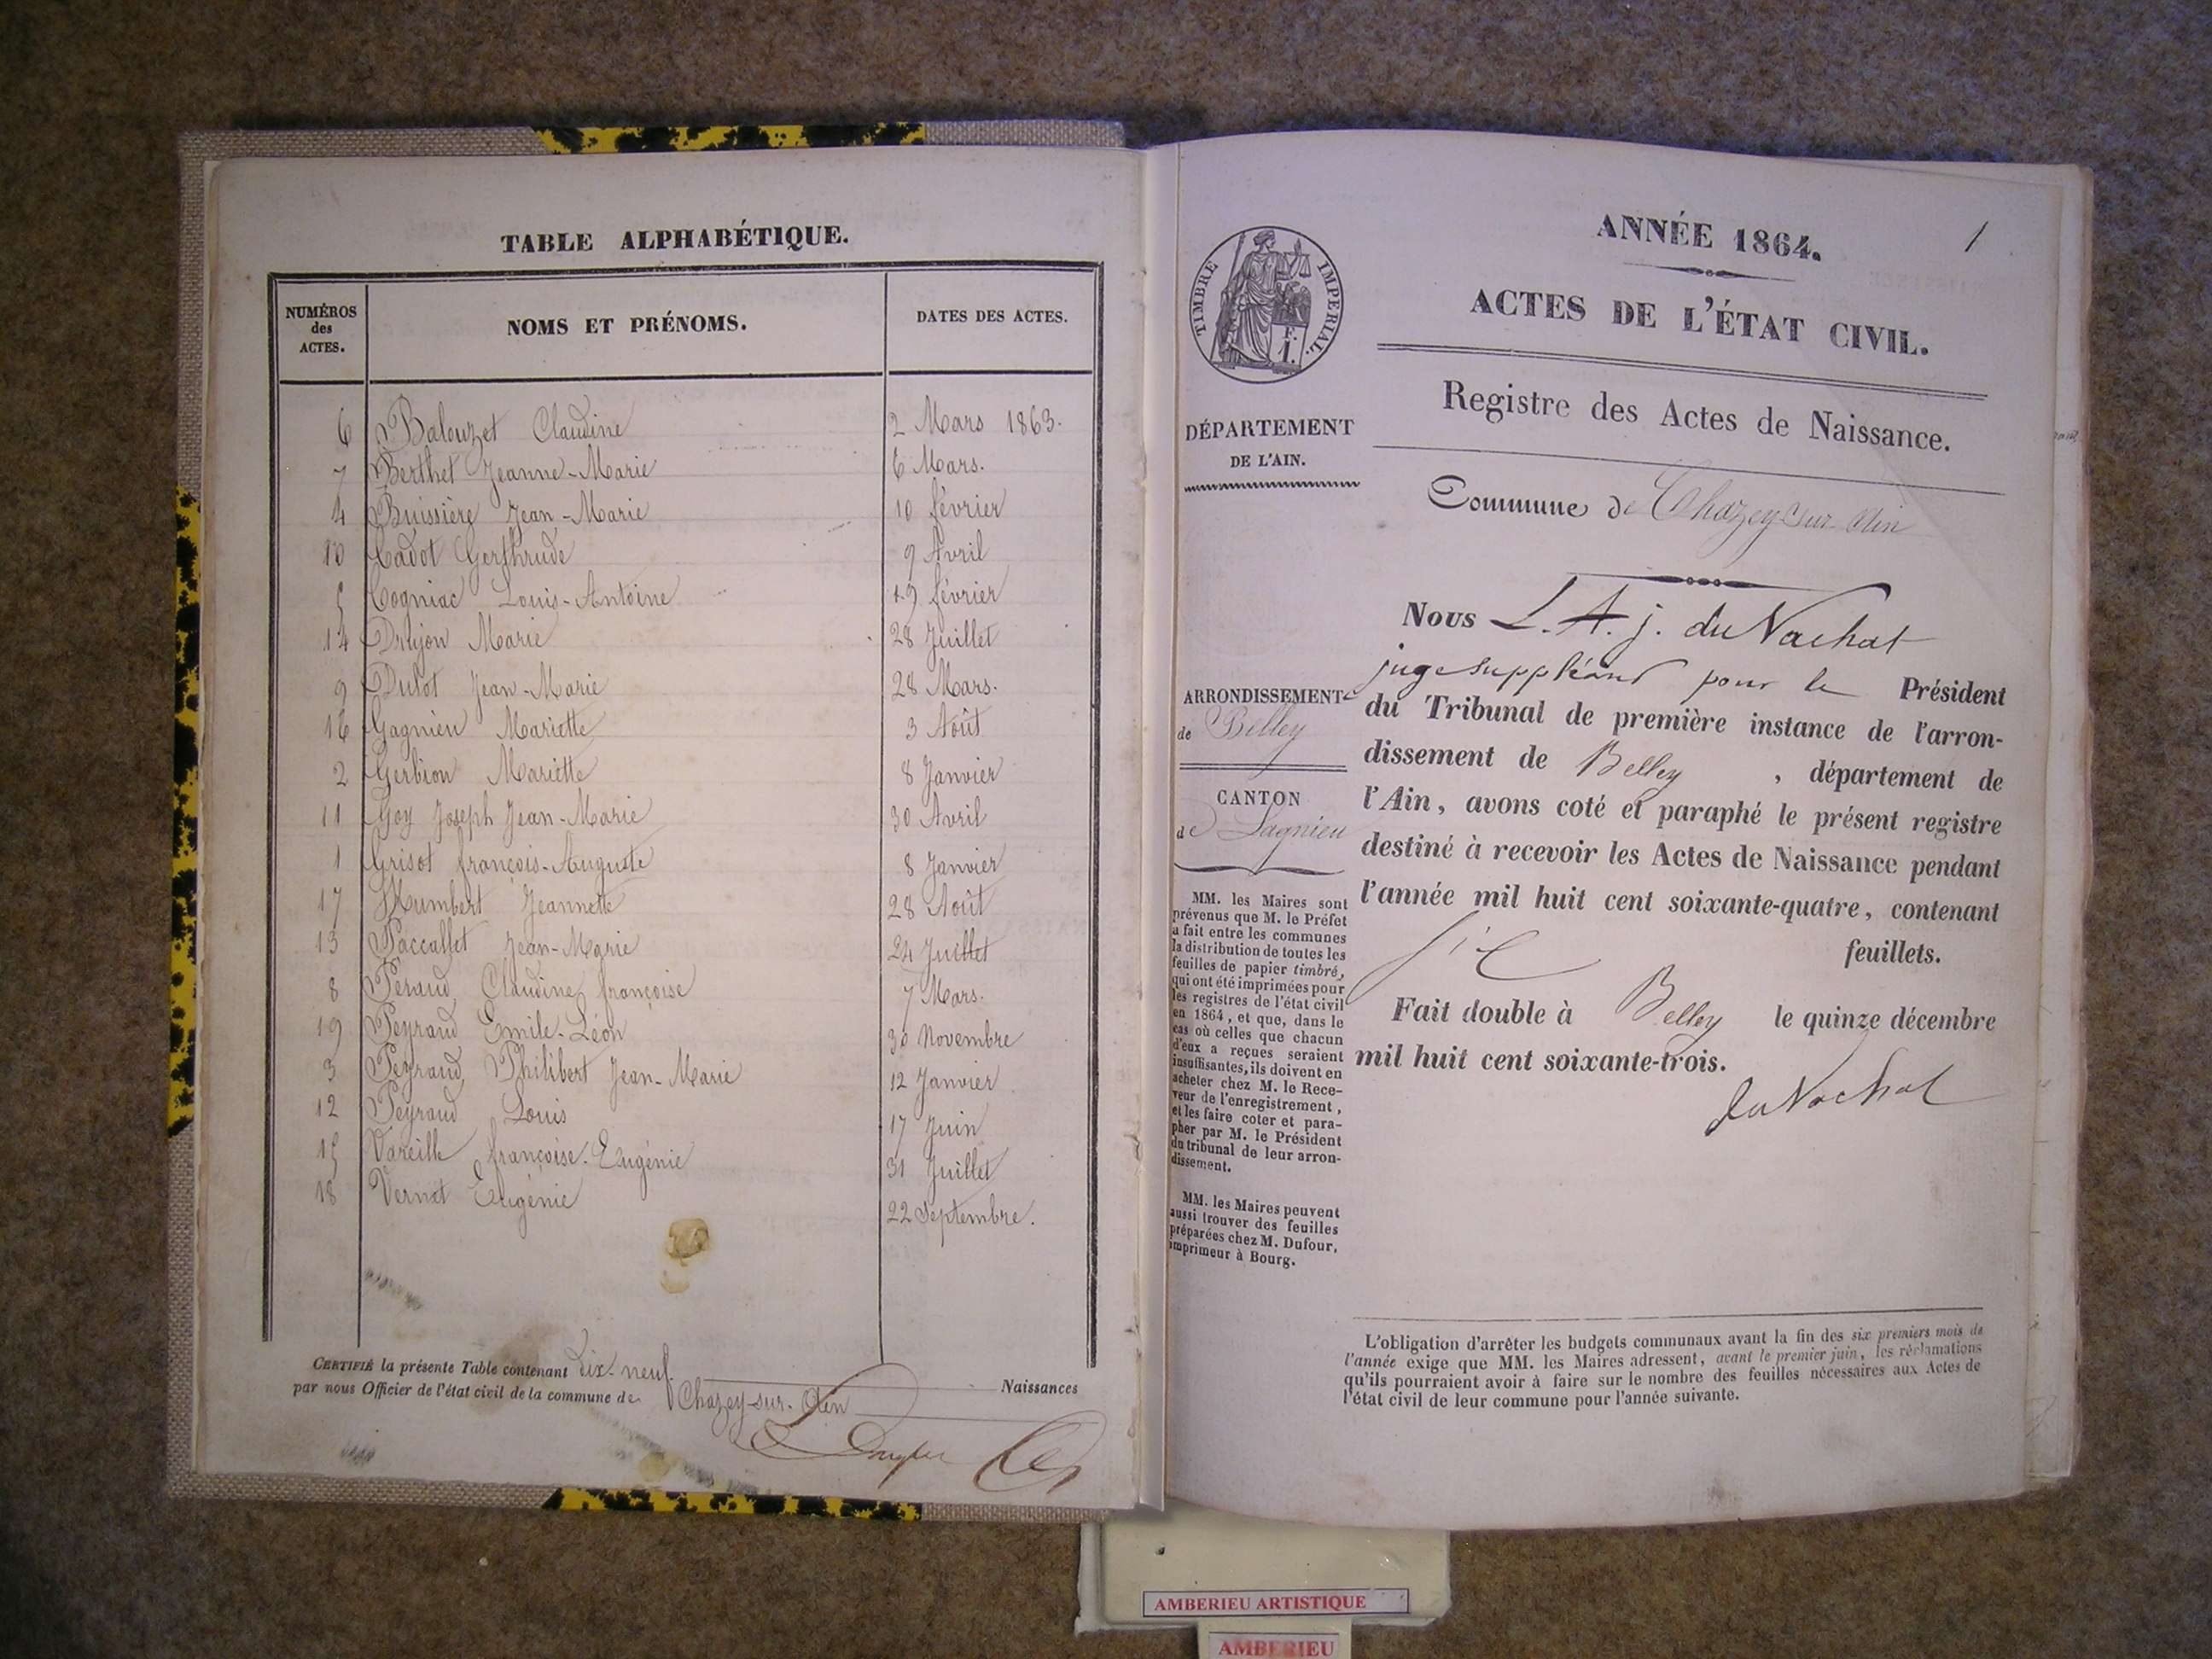 TABLE ALPHABÉTIQUE.
NUMÉROS des ACTES. NOMS ET PRÉNOMS. DATES DES ACTES.
6 Balouzet Claudine 2 Mars 1863.
7 Berthet Jeanne-Marie 6 Mars.
4 Buissière Jean-Marie 10 février
10 Cadot Gerthrude 9 Avril
5 Cogniac Louis-Antoine 19 février
14 Drujon Marie 28 Juillet
9 Dulot Jean-Marie 28 Mars.
16 Gagnieu Mariette 3 Août
2 Gerbion Mariette 8 Janvier
11 Goy Joseph Jean-Marie 30 Avril
1 Grisot françois-Auguste 8 Janvier
17 Humbert Jeannette 28 Août
13 Paccallet Jean-Marie 24 Juillet
8 Peraud Claudine françoise 7 Mars.
19 Peyraud Emile-Léon 30 Novembre
3 Peyraud Philibert Jean-Marie 12 Janvier
12 Peyraud Louis 17 Juin
15 Vareille françoise-Eugénie 31 Juillet
18 Vernet Eugénie 22 Septembre.
CERTIFIÉ la présente Table contenant Dix-neuf Naissances
par nous Officier de l'état civil de la commune de Chazey-sur-Ain
TIMBRE IMPERIAL.
F.
1.
DÉPARTEMENT
DE L'AIN.
ARRONDISSEMENT
de Belley
CANTON
de Lagnieu
MM. les Maires sont
prévenus que M. le Préfet
a fait entre les communes
la distribution de toutes les
feuilles de papier timbré,
qui ont été imprimées pour
les registres de l'état civil
en 1864, et que, dans le
cas où celles que chacun
d'eux a reçues seraient
insuffisantes, ils doivent en
acheter chez M. le Rece-
veur de l'enregistrement,
et les faire coter et para-
pher par M. le Président
du tribunal de leur arron-
dissement.
MM. les Maires peuvent
aussi trouver des feuilles
préparées chez M. Dufour,
imprimeur à Bourg.
1
ANNÉE 1864.
ACTES DE L'ÉTAT CIVIL.
Registre des Actes de Naissance.
Commune de Chazey sur Ain
Nous L. A. j. du Nachat
juge suppléant pour le Président
du Tribunal de première instance de l'arron-
dissement de Belley , département de
l'Ain, avons coté et paraphé le présent registre
destiné à recevoir les Actes de Naissance pendant
l'année mil huit cent soixante-quatre, contenant
feuillets.
Fait double à Belley le quinze décembre
mil huit cent soixante-trois.
du Nachat
L'obligation d'arrêter les budgets communaux avant la fin des six premiers mois de
l'année exige que MM. les Maires adressent, avant le premier juin, les réclamations
qu'ils pourraient avoir à faire sur le nombre des feuilles nécessaires aux Actes de
l'état civil de leur commune pour l'année suivante.
AMBERIEU ARTISTIQUE
AMBERIEU